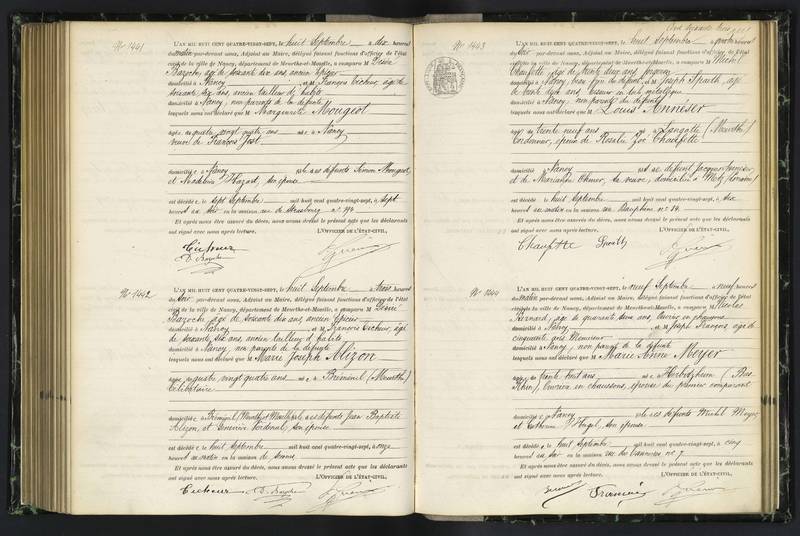 N° 1441
L'AN MIL HUIT CENT QUATRE-VINGT-SEPT, le huit Septembre à dix heures
du matin par-devant nous, Adjoint au Maire, délégué faisant fonctions d'officier de l'état
civil de la ville de Nancy, département de Meurthe-et-Moselle, a comparu M Désiré
Bazoche, âgé de soixante dix ans, ancien épicier
domicilié à Nancy et M François Cicheur, âgé de
soixante dix ans, ancien tailleur d'habits
domicilié à Nancy, non parents de la défunte
lesquels nous ont déclaré que M Marguerite Mougeot
âgée de quatre vingt ans née à Nancy
veuve de François Jost
domiciliée à Nancy fille des défunts Simon Mougeot,
et Madeleine Hazard, son épouse
est décédée le sept Septembre mil huit cent quatre-vingt-sept, à sept
heures du soir en la maison rue de Strasbourg n°
Et après nous être assuré du décès, nous avons dressé le présent acte que les déclarants
ont signé avec nous après lecture. L'OFFICIER DE L'ÉTAT-CIVIL,
Cicheur
D. Bazoche
N° 1442
L'AN MIL HUIT CENT QUATRE-VINGT-SEPT, le huit Septembre à trois heures
du soir par-devant nous, Adjoint au Maire, délégué faisant fonctions d'officier de l'état
civil de la ville de Nancy, département de Meurthe-et-Moselle, a comparu M Désiré
Bazoche, âgé de soixante dix ans, ancien épicier
domicilié à Nancy et M François Cicheur, âgé
de soixante dix ans, ancien tailleur d'habits
domicilié à Nancy, non parents de la défunte
lesquels nous ont déclaré que M Marie Joseph Alizon
âgée de quatre vingt quatre ans née à Bréménil (Meurthe)
Célibataire
domiciliée à Bréménil fille des défunts Jean Baptiste
Alizon, et son épouse
est décédée le huit Septembre mil huit cent quatre-vingt-sept, à onze
heures du matin en la maison de Secours
Et après nous être assuré du décès, nous avons dressé le présent acte que les déclarants
ont signé avec nous après lecture. L'OFFICIER DE L'ÉTAT-CIVIL,
Cicheur D. Bazoche
N° 1443
L'AN MIL HUIT CENT QUATRE-VINGT-SEPT, le huit Septembre à quatre heures
du soir par-devant nous, Adjoint au Maire, délégué faisant fonctions d'officier de l'état
civil de la ville de Nancy, département de Meurthe-et-Moselle, a comparu M Michel
Chaufette, âgé de trente deux ans
domicilié à Nancy, beau frère du défunt et M Joseph Spratt, âgé
de trente ans, tisseur en toile métallique
domicilié à Nancy, non parent du défunt
lesquels nous ont déclaré que M Louis Annéser
âgé de trente neuf ans né à Langatte (Meurthe)
Cordonnier, époux de Rosalie Zoé Chaufette
domicilié à Nancy fils de défunt Jacques Annéser,
et de Marianne sa veuve, domiciliée à Metz (Lorraine)
est décédé le huit Septembre mil huit cent quatre-vingt-sept, à dix
heures du matin en la maison rue Dauphine n° 14
Et après nous être assuré du décès, nous avons dressé le présent acte que les déclarants
ont signé avec nous après lecture. L'OFFICIER DE L'ÉTAT-CIVIL,
Chaufette
N° 1444
L'AN MIL HUIT CENT QUATRE-VINGT-SEPT, le neuf Septembre à neuf heures
du matin par-devant nous, Adjoint au Maire, délégué faisant fonctions d'officier de l'état
civil de la ville de Nancy, département de Meurthe-et-Moselle, a comparu M Nicolas
âgé de quarante deux ans, ouvrier en chaussons
domicilié à Nancy et M Joseph François, âgé de
cinquante ans, Menuisier
domicilié à Nancy, non parent de la défunte
lesquels nous ont déclaré que M Marie Anne Meyer
âgée de trente huit ans née à Herbolzheim (Bas
Rhin), Ouvrière en chaussons, épouse du premier comparant
domiciliée à Nancy fille des défunts Michel Meyer
et Catherine Vogel, son épouse
est décédée le huit Septembre mil huit cent quatre-vingt-sept, à cinq
heures du soir en la maison rue des n° 7
Et après nous être assuré du décès, nous avons dressé le présent acte que les déclarants
ont signé avec nous après lecture. L'OFFICIER DE L'ÉTAT-CIVIL,
François